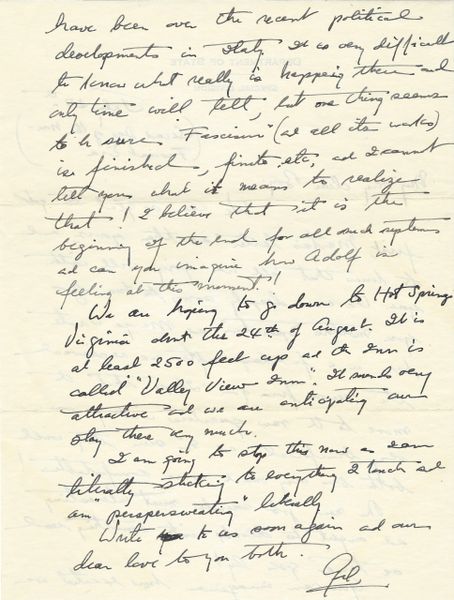 have been over the recent political
developments in Italy. It is very difficult
to know what really is happening there and
only time will tell, but one thing seems
to be sure. Fascism (and all its works)
is finished, finito, etc, and I cannot
tell you what it means to realize
that! I believe that it is the
beginning of the end for all such systems
and can you imagine how Adolf is
feeling at this moment!!
We are hoping to go down to Hot Springs
Virginia about the 24th of August. It is
at least 2500 feet up and the Inn is
called "Valley View Inn". It sounds very
attractive and we are anticipating our
stay there very much.
I am going to stop this now as I am
literally sticking to everything I touch and
am "perspersweating" literally.
Write to us soon again and our
dear love to you both.